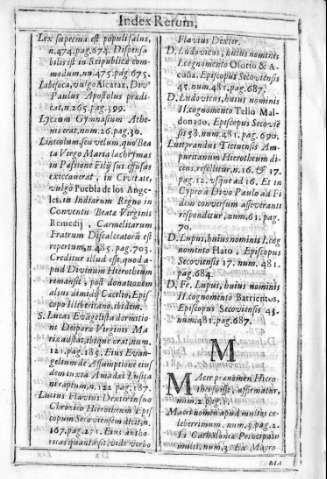 Index Rerum.
Lex suprema est populi salus,
n.474.pag.674. Dispensa
bilis est in Reipublicæ com
modum,nu.475.pag.675.
Labosoca, vulgo Alcaraz, Divus
Paulus Apostolus prædi
cat, n.265.pag.399.
Lyceum Gymnasium Athe
nis erat, num.26.pag.30.
Linteolum, seu velum, quo Bea
ta Virgo Maria lachrymas
in Passione Filij sui effusas
exsiccaverat, in Civitate,
vulgò Puebla de los Ange
les, in Indiarum Regno in
Conventu Beatæ Virginis
Remedij, Carmelitarum
Fratrum Discalceatorũ est
repertum, n.485. pag.703.
Creditur illud esse, quod a-
pud Divinum Hierotheum
remansit, post donationem
alius a Cæcilio, Epis
copo Illeberitano, ibidem.
S. Lucas Evangelista dormitio
ne Deiparæ Virginis Ma
riæ adfuit, ibique erat, num.
121. pag.185. Eius Evan-
gelium de Assumptione eius
dem incœna
num. 122 pag.187.
Lucius Flavius Dexter in suo
Chronico Hierotheum Epis
copum Secoviensem dicit, n.
167.pag.271. Eius autho-
ritas quanta sit, vide verbo
Flavius Dexter.
D. Ludovicus, huius nominis
I. cognomento Osorio & A-
cuña, Episcopus Secoviensis
45. num.481. pag.687.
D. Ludovicus, huius nominis
II. cognomento Tello Mal-
donado, Episcopus Secoviẽ
sis 58. num.481. pag.690.
Luitprandus Ticinensis Am-
puritanum Hierotheum di-
cens, refellitur, n.16. & 17.
pag.12. usque ad 16. Et in
Cypro à Divo Paulo ad Fi
dem conversum asseveranti
respondetur, num.61. pag.
70.
D. Lupus, huius nominis I. cog
nomento Haro, Episcopus
Secoviensis 17. num. 481.
pag.684.
D. Fr. Lupus, huius nominis
II. cognomento Barrientos,
Episcopus Secoviensis 43.
num.481. pag.687.
M
Macer prænomen Hiero
thei fuisse, affirmatur,
num.2.pag.1.
Macri nomen apud multos ce
leberrimum, num.3.pag.2.
In Catholica Principum
multi, num.3. Ex Macro